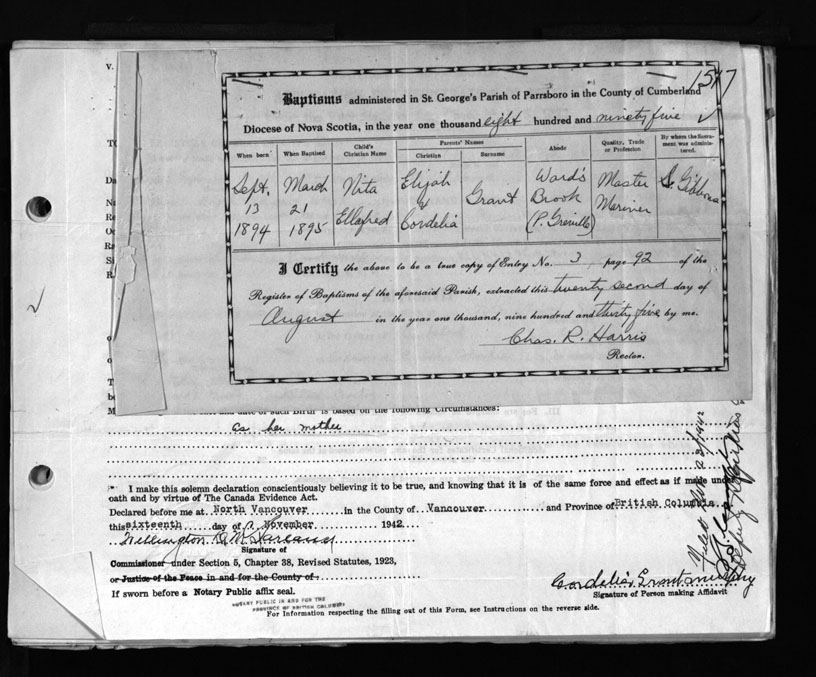 V.
1517
Baptisms administered in St. George's Parish of Parrsboro in the County of Cumberland
Diocese of Nova Scotia, in the year one thousand eight hundred and ninety five
When born
When Baptised
Child's Christian Name
Parents' Names
Christian
Surname
Abode
Quality, Trade or Profession
By whom the Sacrament was administered.
Sept. 13 1894
March 21 1895
Nita Ellafred
Elijah & Cordelia
Grant
Ward's Brook (P. Greville)
Master Mariner
S. Gibbons
I Certify the above to be a true copy of Entry No. 3 page 92 of the
Register of Baptisms of the aforesaid Parish, extracted this twenty second day of
August in the year one thousand, nine hundred and thirty five by me.
Chas. R. Harris
Rector.
and date of such Birth is based on the following Circumstances:
as her mother
I make this solemn declaration conscientiously believing it to be true, and knowing that it is of the same force and effect as if made under
oath and by virtue of The Canada Evidence Act.
Declared before me at North Vancouver in the County of Vancouver and Province of British Columbia
this sixteenth day of November 1942
Signature of
Commissioner under Section 5, Chapter 38, Revised Statutes, 1923,
or Justice of the Peace in and for the County of
If sworn before a Notary Public affix seal.
NOTARY PUBLIC IN AND FOR THE
PROVINCE OF BRITISH COLUMBIA
Signature of Person making Affidavit
For Information respecting the filling out of this Form, see Instructions on the reverse side.